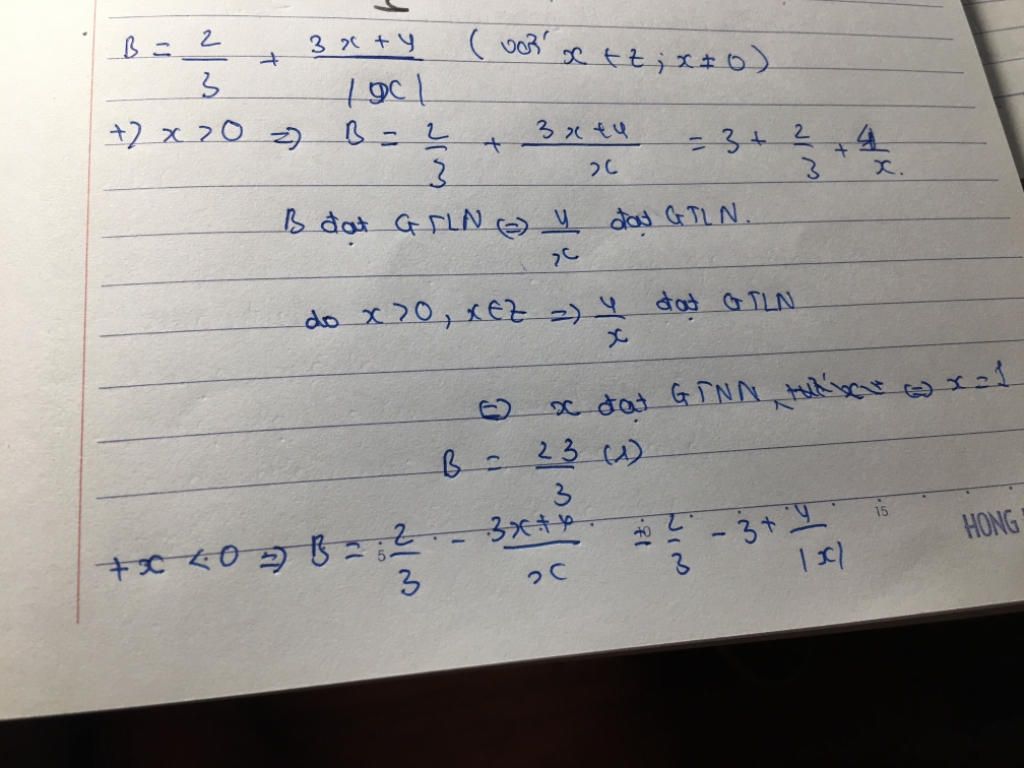 B = 2/3 + (3x+4)/|x| (với x ∈ Z; x ≠ 0)
+) x > 0 => B = 2/3 + (3x+4)/x = 3 + 2/3 + 4/x.
B đạt GTLN <=> 4/x đạt GTLN.
do x > 0, x ∈ Z => 4/x đạt GTLN
<=> x đạt GTNN <=> x = 1
B = 23/3 (1)
+ x < 0 => B = 2/3 - (3x+4)/x = 2/3 - 3 + 4/|x|
5 10 15 HONG